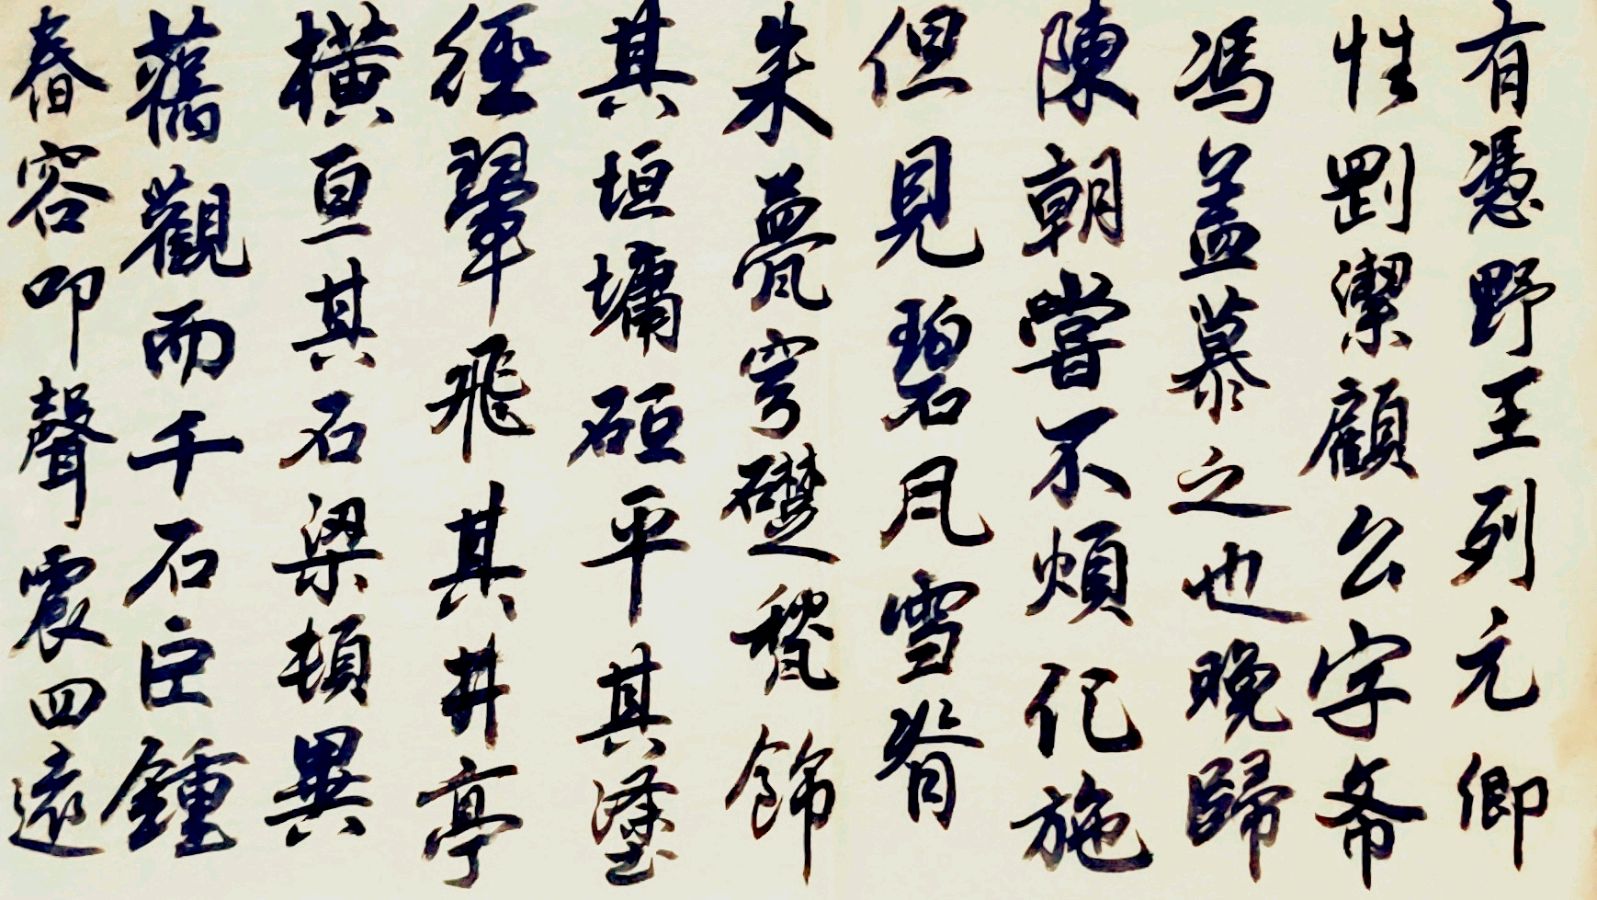 有憑野王列元卿
性剛潔顧公字希
馮蓋慕之也晚歸
陳朝嘗不煩促施
但見碧瓦雪脊
朱甍穹礎甃飾
其垣墉砥平其塗
徑翬飛其井亭
橫亘其石梁頓異
舊觀而千石巨鍾
舂容叩聲震四遠